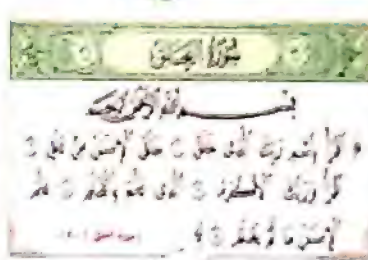 سورة العلق
بسم الله الرحمن الرحيم
اقرأ باسم ربك الذي خلق ۝ خلق الإنسان من علق ۝
اقرأ وربك الأكرم ۝ الذي علم بالقلم ۝ علم
الإنسان ما لم يعلم ۝